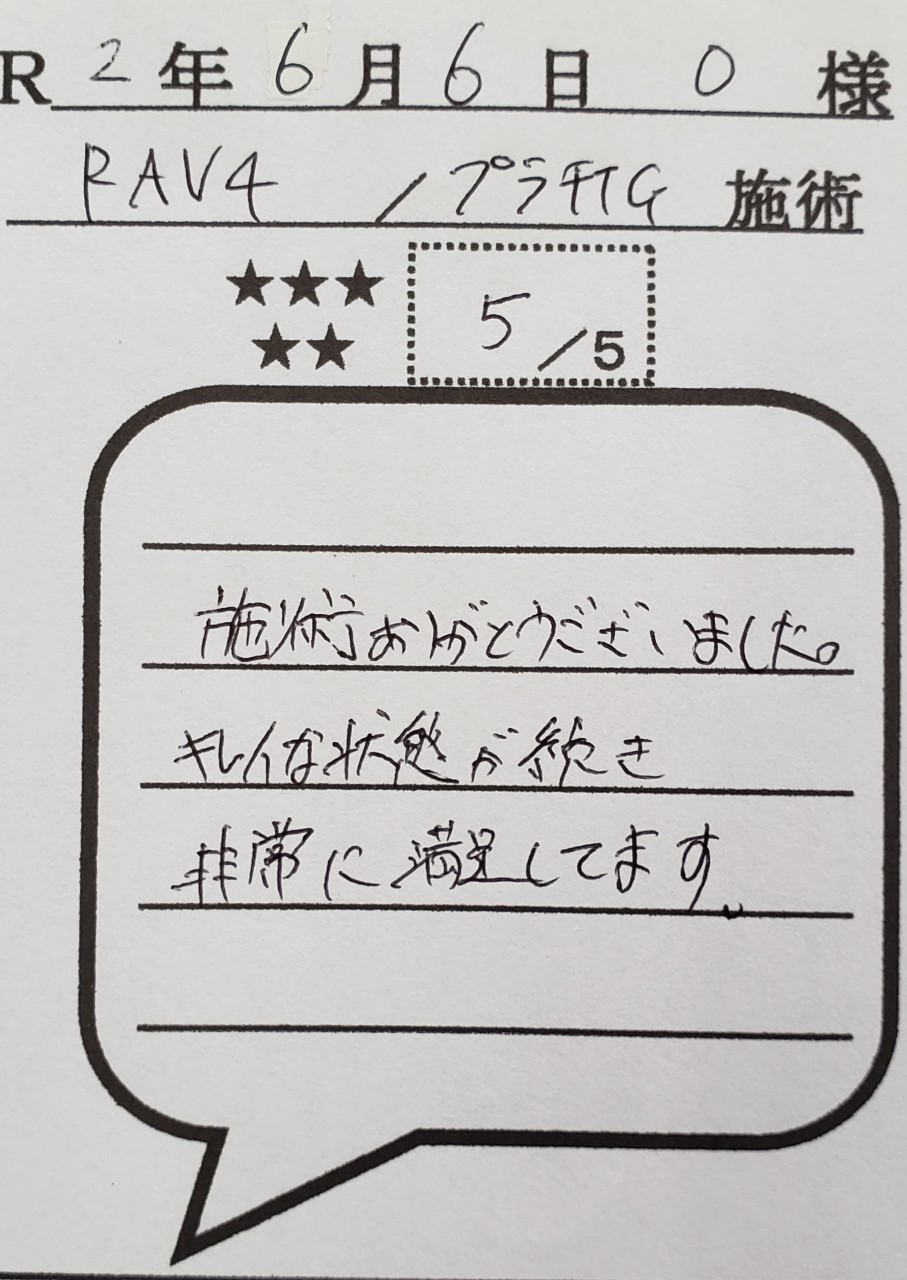 R 2年 6月 6日 O 様
RAV4 /プラチTG 施術
★★★
★★
5/5
施術ありがとうございました。
キレイな状態が続き
非常に満足してます。